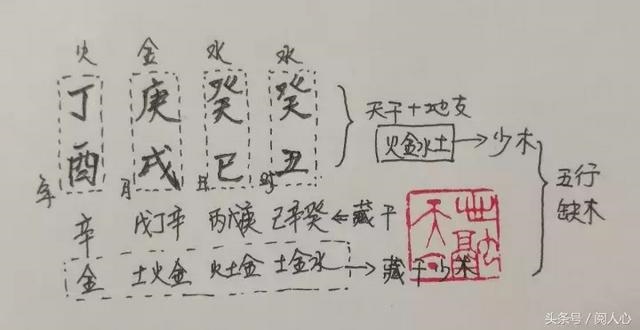 火 金 水 水
丁 庚 癸 癸
天干+地支
火金水土→少木
酉 戌 巳 丑
年 月 日 时
五行
缺木
辛 戊丁辛 丙戊庚 己辛癸←藏干
金 土火金 火土金 土金水→藏干少木
头条号/阅人心